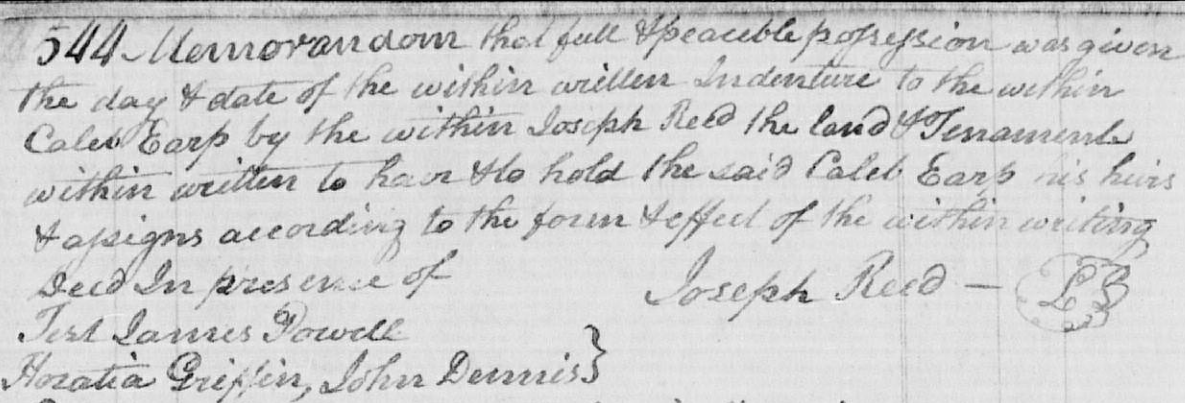 544 Memorandom that full & peaceble possession was given
the day & date of the within written Indenture to the within
Caleb Earp by the within Joseph Reed the land & Tenaments
within written to have & to hold the said Caleb Earp his heirs
& assigns according to the form & effect of the within writing
Deed In presence of Joseph Reed — LS
Test James Powell
Horatia Griffin, John Dennis}